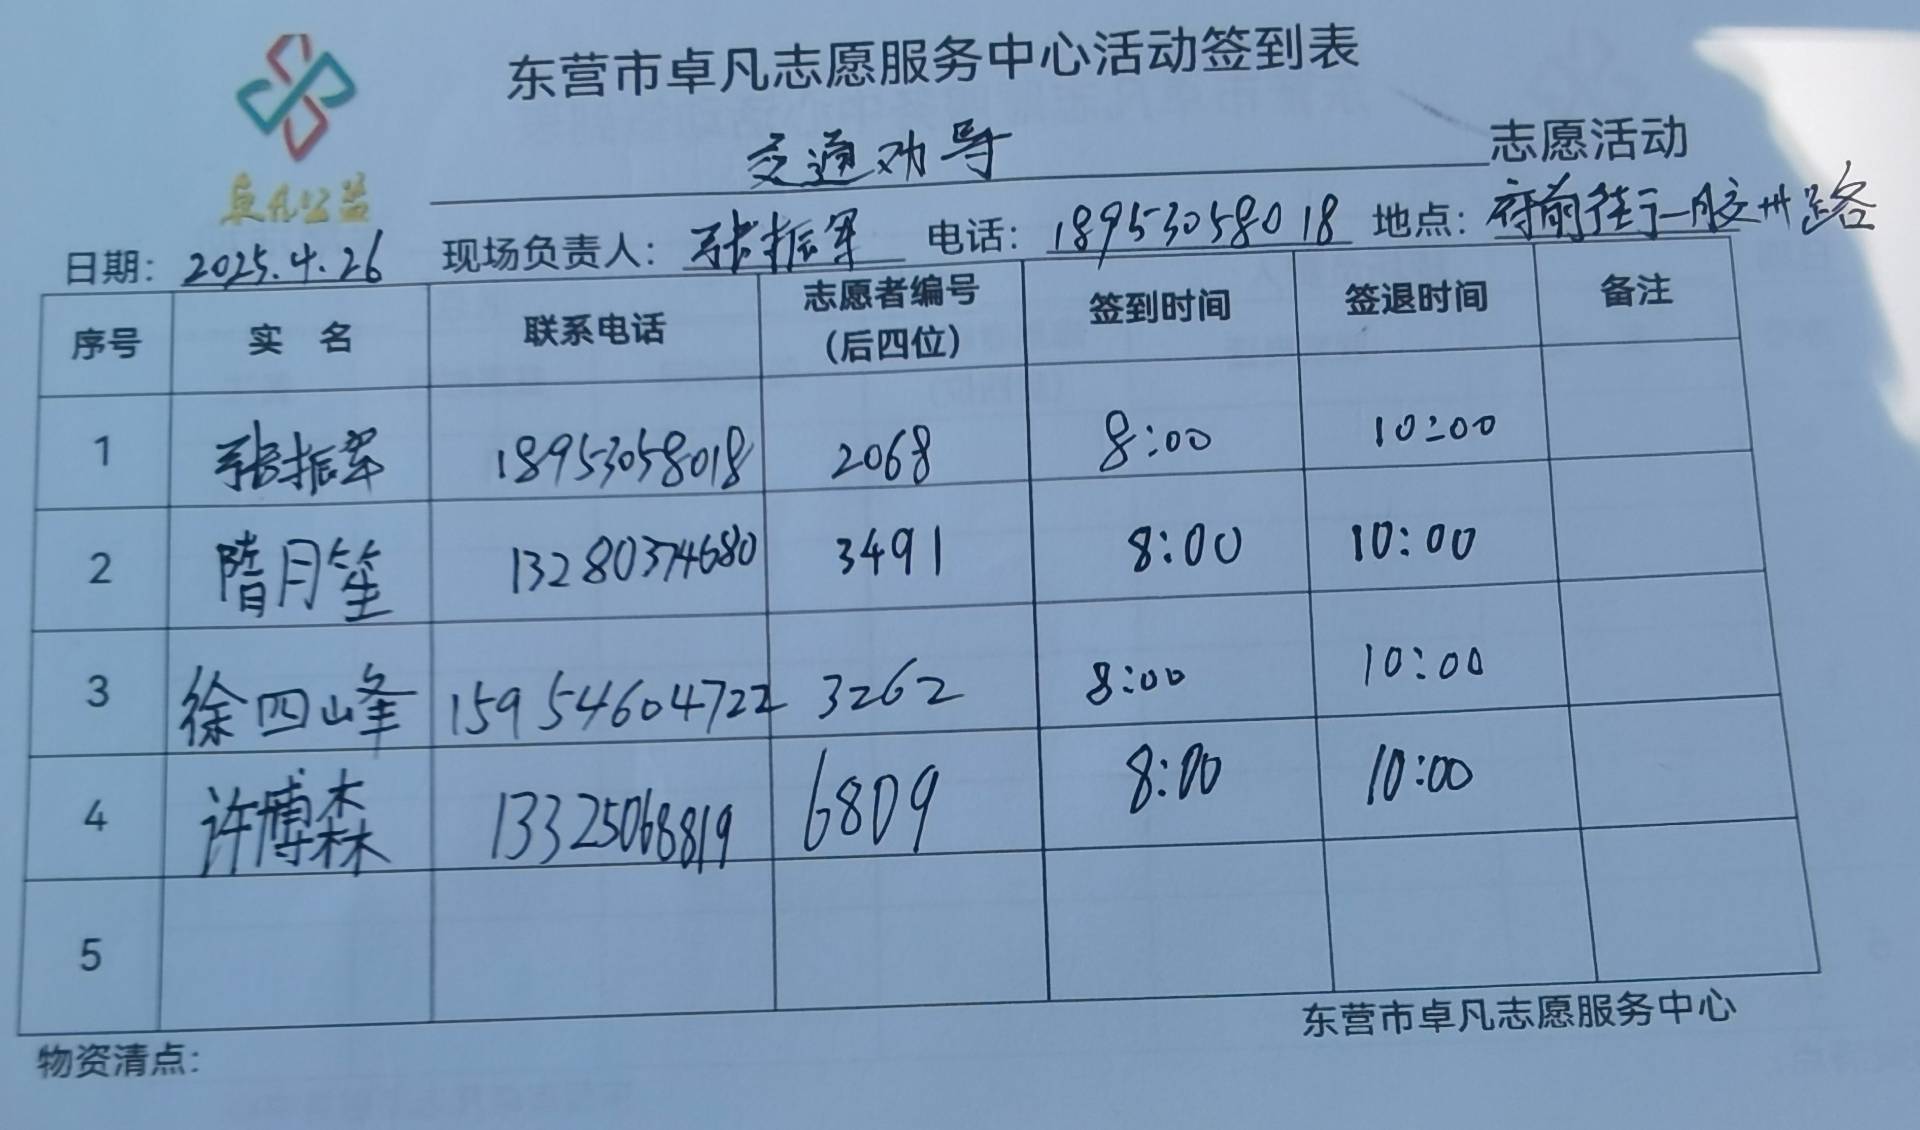 东营市卓凡志愿服务中心活动签到表
交通劝导 志愿活动
卓凡公益
日期: 2025.4.26 现场负责人: 张振军 电话: 18953058018 地点: 府前街—胶州路
序号 实 名 联系电话 志愿者编号(后四位) 签到时间 签退时间 备注
1 张振军 18953058018 2068 8:00 10:00
2 隋月笙 13280374680 3491 8:00 10:00
3 徐四峰 15954604722 3262 8:00 10:00
4 许博森 13325068819 6809 8:00 10:00
5
东营市卓凡志愿服务中心
物资清点: